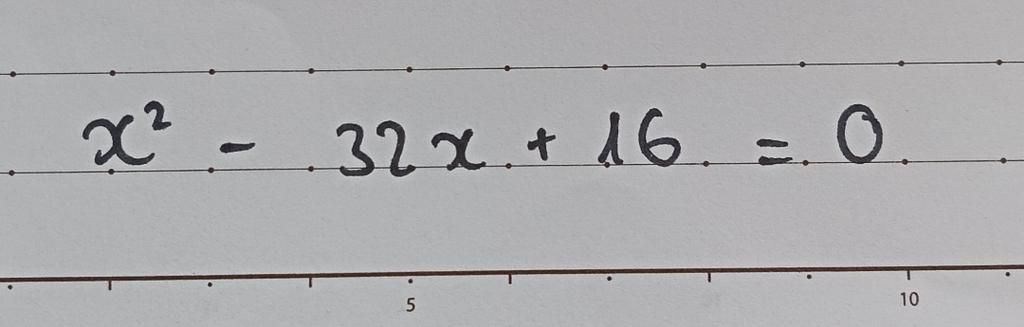 x² - 32x + 16 = 0
5 10